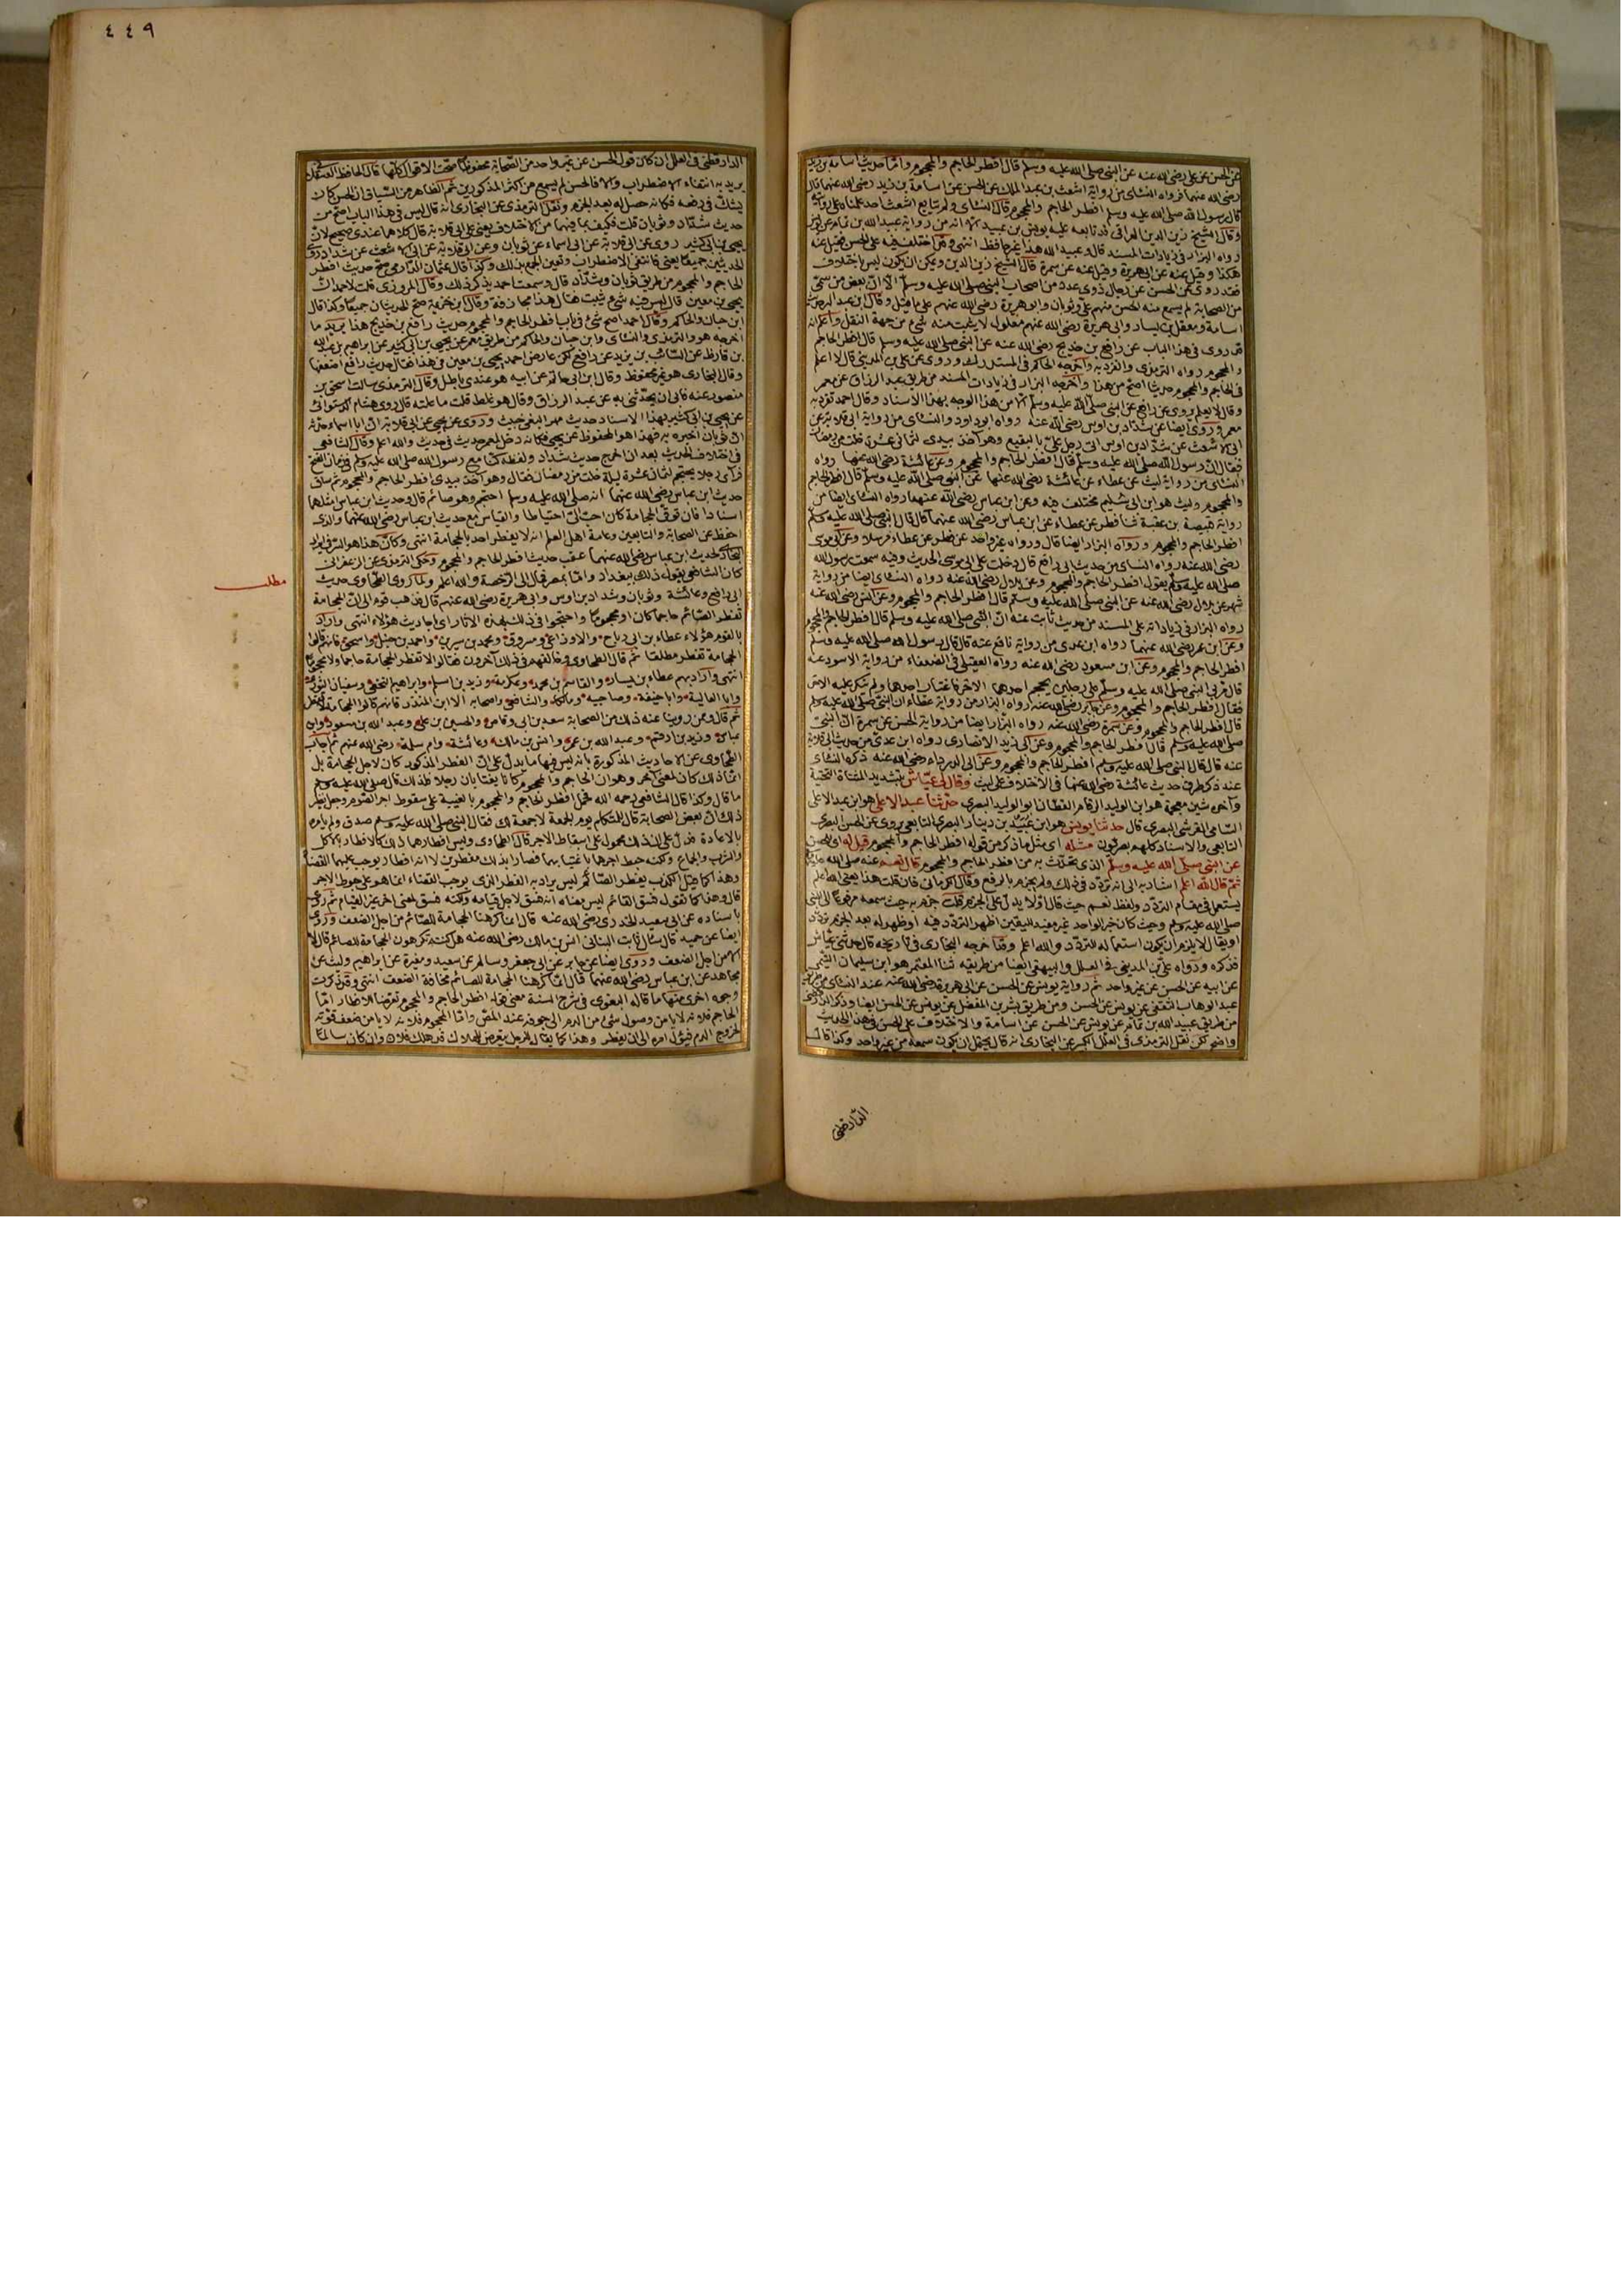 عن الحسن عن علي رضي الله عنه عن النبي صلى الله عليه وسلم قال افطر الحاجم والمحجوم واما حديث اسامة بن زيد
رضي الله عنهما فرواه النسائي من رواية اشعث بن عبد الملك عن الحسن عن اسامة بن زيد رضي الله عنهما قال
قال رسول الله صلى الله عليه وسلم افطر الحاجم والمحجوم قال النسائي ولم يتابع اشعث احد علمناه على روايته
وقال الشيخ زين الدين العراقي قد تابعه عليه يونس بن عبيد الا انه من رواية عبيد الله بن تمام عن يونس
رواه البزار في زيادات المسند قال وعبيد الله هذا غير حافظ انتهى وقد اختلف فيه على الحسن فقيل عنه
هكذا وقيل عنه عن ابي هريرة وقيل عنه عن سمرة قال الشيخ زين الدين ويمكن ان يكون ليس باختلاف
فقد روى عن الحسن عن رجال ذوي عدد من اصحاب النبي صلى الله عليه وسلم الا ان بعض من سمى
من الصحابة لم يسمع منه الحسن منهم علي وثوبان وابو هريرة رضي الله عنهم على ما قيل وقال ابن عبد البر حديث
اسامة ومعقل بن يسار وابي هريرة رضي الله عنهم معلول لا يثبت منه شيء من جهة النقل واعلم انه
قد روى في هذا الباب عن رافع بن خديج رضي الله عنه عن النبي صلى الله عليه وسلم قال افطر الحاجم
والمحجوم رواه الترمذي وانفرد به واخرجه الحاكم في المستدرك وروى عن علي بن المديني قال لا اعلم
في الحاجم والمحجوم حديثا اصح من هذا واخرجه البزار في زيادات المسند من طريق عبد الرزاق عن معمر
وقال لا يعلم يروى عن رافع عن النبي صلى الله عليه وسلم الا من هذا الوجه بهذا الاسناد وقال احمد تفرد به
معمر وروى ايضا عن شداد بن اوس رضي الله عنه رواه ابو داود والنسائي من رواية ابي قلابة عن
ابي الاشعث عن شداد بن اوس اتى رجل على بالبقيع وهو آخذ بيدي لثماني عشرة خلت من رمضان
فقال ان رسول الله صلى الله عليه وسلم قال افطر الحاجم والمحجوم وعن عائشة رضي الله عنها رواه
النسائي من رواية ليث عن عطاء عن عائشة رضي الله عنها عن النبي صلى الله عليه وسلم قال افطر الحاجم
والمحجوم وليث هو ابن ابي سليم مختلف فيه وعن ابن عباس رضي الله عنهما رواه النسائي ايضا من
رواية قبيصة بن عقبة ثنا فطر عن عطاء عن ابن عباس رضي الله عنهما قال قال النبي صلى الله عليه وسلم
افطر الحاجم والمحجوم ورواه البزار ايضا قال ورواه غير واحد عن فطر عن عطاء مرسلا وعن ابي موسى
رضي الله عنه رواه النسائي من حديث ابي رافع قال دخلت على ابي موسى الحديث وفيه سمعت رسول الله
صلى الله عليه وسلم يقول افطر الحاجم والمحجوم وعن بلال رضي الله عنه رواه النسائي ايضا من رواية
شهر عن بلال رضي الله عنه عن النبي صلى الله عليه وسلم قال افطر الحاجم والمحجوم وعن انس رضي الله عنه
رواه البزار في زياداته على المسند من حديث ثابت عنه ان النبي صلى الله عليه وسلم قال افطر الحاجم والمحجوم
وعن ابن عمر رضي الله عنهما رواه ابن عدي من رواية نافع عنه قال قال رسول الله صلى الله عليه وسلم
افطر الحاجم والمحجوم وعن ابن مسعود رضي الله عنه رواه العقيلي في الضعفاء من رواية الاسود عنه
قال مر بي النبي صلى الله عليه وسلم على رجلين يحجم احدهما الاخر فاغتاب احدهما ولم ينكر عليه الاخر
فقال افطر الحاجم والمحجوم وعن جابر رضي الله عنه رواه البزار من رواية عطاء ان النبي صلى الله عليه وسلم
قال افطر الحاجم والمحجوم وعن سمرة رضي الله عنه رواه البزار ايضا من رواية الحسن عن سمرة ان النبي
صلى الله عليه وسلم قال افطر الحاجم والمحجوم وعن ابي زيد الانصاري رواه ابن عدي من حديث ابي قلابة
عنه قال قال النبي صلى الله عليه وسلم افطر الحاجم والمحجوم وعن ابي الدرداء رضي الله عنه ذكره النسائي
عند ذكر طرق حديث عائشة رضي الله عنها في الاختلاف على ليث وقال لي عياش بتشديد المثناة التحتية
وآخره شين معجمة هو ابن الوليد الرقام القطان ابو الوليد البصري حدثنا عبد الاعلى هو ابن عبد الاعلى
السامي القرشي البصري قال حدثنا يونس هو ابن عبيد بن دينار البصري التابعي يروي عن الحسن البصري
التابعي والاسناد كلهم بصريون مثله اي مثل ما ذكر من قوله افطر الحاجم والمحجوم قيل له اي للحسن
عن النبي صلى الله عليه وسلم الذي يحدث به من افطر الحاجم والمحجوم قال نعم عنه صلى الله عليه وسلم
ثم قال الله اعلم اشار به الى انه تردد في ذلك ولم يجزم بالرفع وقال الكرماني فان قلت هذا يعني الله اعلم
يستعمل في مقام التردد ولفظ نعم حيث قال اولا يدل على الجزم قلت جزم به حيث سمعه مرفوعا الى النبي
صلى الله عليه وسلم وحيث كان خبر الواحد غير مفيد لليقين اظهر التردد فيه او ظهر له بعد الجزم تردد
او يقال لا يلزم ان يكون استعماله للتردد والله اعلم وقد اخرجه البخاري في تاريخه قال حدثني عياش
فذكره ورواه علي بن المديني في العلل والبيهقي ايضا من طريقه ثنا المعتمر هو ابن سليمان التيمي
عن ابيه عن الحسن عن غير واحد ثم رواية يونس عن الحسن عن ابي هريرة رضي الله عنه عند النسائي من طريق
عبد الوهاب الثقفي عن يونس عن الحسن ومن طريق بشر بن المفضل عن يونس عن الحسن ايضا وذكر
من طريق عبيد الله بن تمام عن يونس عن الحسن عن اسامة والاختلاف على الحسن في هذا الحديث
واضح لكن نقل الترمذي في العلل الكبير عن البخاري انه قال يحتمل ان يكون سمعه من غير واحد وكذا قال
الدارقطني
٤٤٩
الدارقطني في العلل ان كان قول الحسن عن غير واحد من الصحابة محفوظا صحت الاقوال كلها قال الحافظ العسقلاني
يريد به انتفاء الاضطراب والا فالحسن لم يسمع من اكثر المذكورين ثم الظاهر من السياق ان الحسن كان
يشك في رفعه فكانه حصل له بعد الجزم ونقل الترمذي عن البخاري انه قال ليس في هذا الباب اصح من
حديث شداد وثوبان قلت فكيف بما فيهما من الاختلاف يعني على ابي قلابة قال كلاهما عندي صحيح لان
يحيى بن ابي كثير روى عن ابي قلابة عن ابي اسماء عن ثوبان وعن ابي قلابة عن ابي الاشعث عن شداد روى
الحديثين جميعا يعني فانتفى الاضطراب وتعين الجمع بذلك وكذا قال عثمان الدارمي صح حديث افطر
الحاجم والمحجوم من طريق ثوبان وشداد قال وسمعت احمد يذكر ذلك وقال المروزي قلت لاحمد ان
يحيى بن معين قال ليس فيه شيء يثبت فقال هذا مجازفة وقال ابن خزيمة صح الحديثان جميعا وكذا قال
ابن حبان والحاكم وقال احمد اصح شيء في باب افطر الحاجم والمحجوم حديث رافع بن خديج هذا يريد ما
اخرجه هو والترمذي والنسائي وابن حبان والحاكم من طريق معمر عن يحيى بن ابي كثير عن ابراهيم بن عبد الله
بن قارظ عن السائب بن يزيد عن رافع لكن عارض احمد يحيى بن معين في هذا فقال حديث رافع اضعفها
وقال البخاري هو غير محفوظ وقال ابن ابي حاتم عن ابيه هو عندي باطل وقال الترمذي سالت اسحق بن
منصور عنه فابى ان يحدثني به عن عبد الرزاق وقال هو غلط قلت ما علته قال روى هشام الدستوائي
عن يحيى بن ابي كثير بهذا الاسناد حديث مهر البغي خبيث وروى عن يحيى عن ابي قلابة ان ابا اسماء حدثه
ان ثوبان اخبره به فهذا هو المحفوظ عن يحيى فكانه دخل لمعمر حديث في حديث والله اعلم وقال الشافعي
في اختلاف الحديث بعد ان اخرج حديث شداد ولفظه كنا مع رسول الله صلى الله عليه وسلم في زمان الفتح
فراى رجلا يحتجم لثمان عشرة ليلة خلت من رمضان فقال وهو آخذ بيدي افطر الحاجم والمحجوم ثم ساق
حديث ابن عباس رضي الله عنهما انه صلى الله عليه وسلم احتجم وهو صائم قال وحديث ابن عباس امثلهما
اسنادا فان توقى الحجامة كان احب الي احتياطا والقياس مع حديث ابن عباس رضي الله عنهما والذي
احفظ عن الصحابة والتابعين وعامة اهل العلم انه لا يفطر احد بالحجامة انتهى وكأن هذا هو السر في ايراد
البخاري لحديث ابن عباس رضي الله عنهما عقب حديث افطر الحاجم والمحجوم وحكى الترمذي عن الزعفراني
كان الشافعي يقول ذلك ببغداد واما بمصر فمال الى الرخصة والله اعلم ولما روى الطحاوي حديث
مطلب
ابي رافع وعائشة وثوبان وشداد بن اوس وابي هريرة رضي الله عنهم قال فذهب قوم الى ان الحجامة
تفطر الصائم حاجما كان او محجوما واحتجوا في ذلك بهذه الآثار اي احاديث هؤلاء انتهى واراد
بالقوم هؤلاء عطاء بن ابي رباح والاوزاعي ومسروق ومحمد بن سيرين واحمد بن حنبل واسحق فانهم قالوا
الحجامة تفطر مطلقا ثم قال الطحاوي وخالفهم في ذلك آخرون فقالوا لا تفطر الحجامة حاجما ولا محجوما
انتهى واراد بهم عطاء بن يسار والقاسم بن محمد وعكرمة وزيد بن اسلم وابراهيم النخعي وسفيان الثوري
وابا العالية وابا حنيفة وصاحبيه ومالكا والشافعي واصحابه الا ابن المنذر فانهم قالوا الحجامة لا تفطر
ثم قال وممن روينا عنه ذلك من الصحابة سعد بن ابي وقاص والحسين بن علي وعبد الله بن مسعود وابن
عباس وزيد بن ارقم وعبد الله بن عمر وانس بن مالك وعائشة وام سلمة رضي الله عنهم ثم اجاب
الطحاوي عن الاحاديث المذكورة بانه ليس فيها ما يدل على ان الفطر المذكور كان لاجل الحجامة بل
انما ذلك كان لمعنى آخر وهو ان الحاجم والمحجوم كانا يغتابان رجلا فلذلك قال صلى الله عليه وسلم
ما قال وكذا قال الشافعي رحمه الله فحمل افطر الحاجم والمحجوم بالغيبة على سقوط اجر الصوم وجعل نظير
ذلك ان بعض الصحابة قال للمتكلم يوم الجمعة لا جمعة لك فقال النبي صلى الله عليه وسلم صدق ولم يامره
بالاعادة فدل على ان ذلك محمول على اسقاط الاجر قال الطحاوي وليس افطارهما ذلك كالافطار بالاكل
والشرب والجماع ولكنه حبط اجرهما باغتيابهما فصارا بذلك مفطرين لا انه افطار يوجب عليهما القضاء
وهذا كما قيل الكذب يفطر الصائم ليس يراد به الفطر الذي يوجب القضاء انما هو على حبوط الاجر
قال وهذا كما نقول فسق القائم ليس معناه انه فسق لاجل قيامه ولكنه فسق لمعنى اخر غير القيام ثم روى
باسناده عن ابي سعيد الخدري رضي الله عنه قال انما كرهنا الحجامة للصائم من اجل الضعف وروى
ايضا عن حميد قال سال ثابت البناني انس بن مالك رضي الله عنه هل كنتم تكرهون الحجامة للصائم قال لا
الا من اجل الضعف وروى ايضا عن جابر عن ابي جعفر وسالم عن سعيد ومغيرة عن ابراهيم وليث عن
مجاهد عن ابن عباس رضي الله عنهما قال انما كرهنا الحجامة للصائم مخافة الضعف انتهى وقد ذكرت
وجوه اخرى منها ما قاله البغوي في شرح السنة معنى قوله افطر الحاجم والمحجوم تعرضا للافطار اما
الحاجم فلانه لا يامن وصول شيء من الدم الى جوفه عند المص واما المحجوم فلانه لا يامن ضعف قوته
لخروج الدم فيؤل امره الى ان يفطر وهذا كما يقال للرجل يتعرض للهلاك قد هلك فلان وان كان سالما